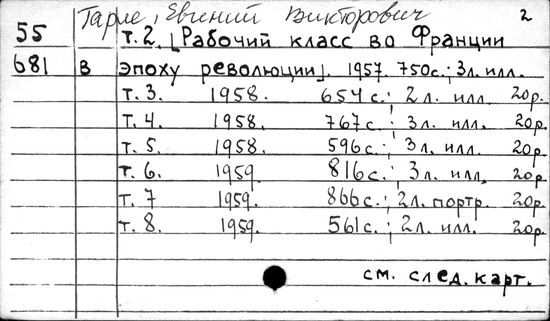 Тарле, Евгений Викторович 2
55 т. 2. [Рабочий класс во Франции
681 в эпоху революции]. 1957. 750с.; 3л. илл.
т. 3. 1958. 654с.; 2л. илл. 20р.
т. 4. 1958. 767с.; 3л. илл. 20р.
т. 5. 1958. 596с.; 3л. илл. 20р.
т. 6. 1959 816с.; 3л. илл, 20р.
т. 7 1959. 866с.; 2л. портр. 20р.
т. 8. 1959. 561с.; 2л. илл. 20р.
см. след. карт.